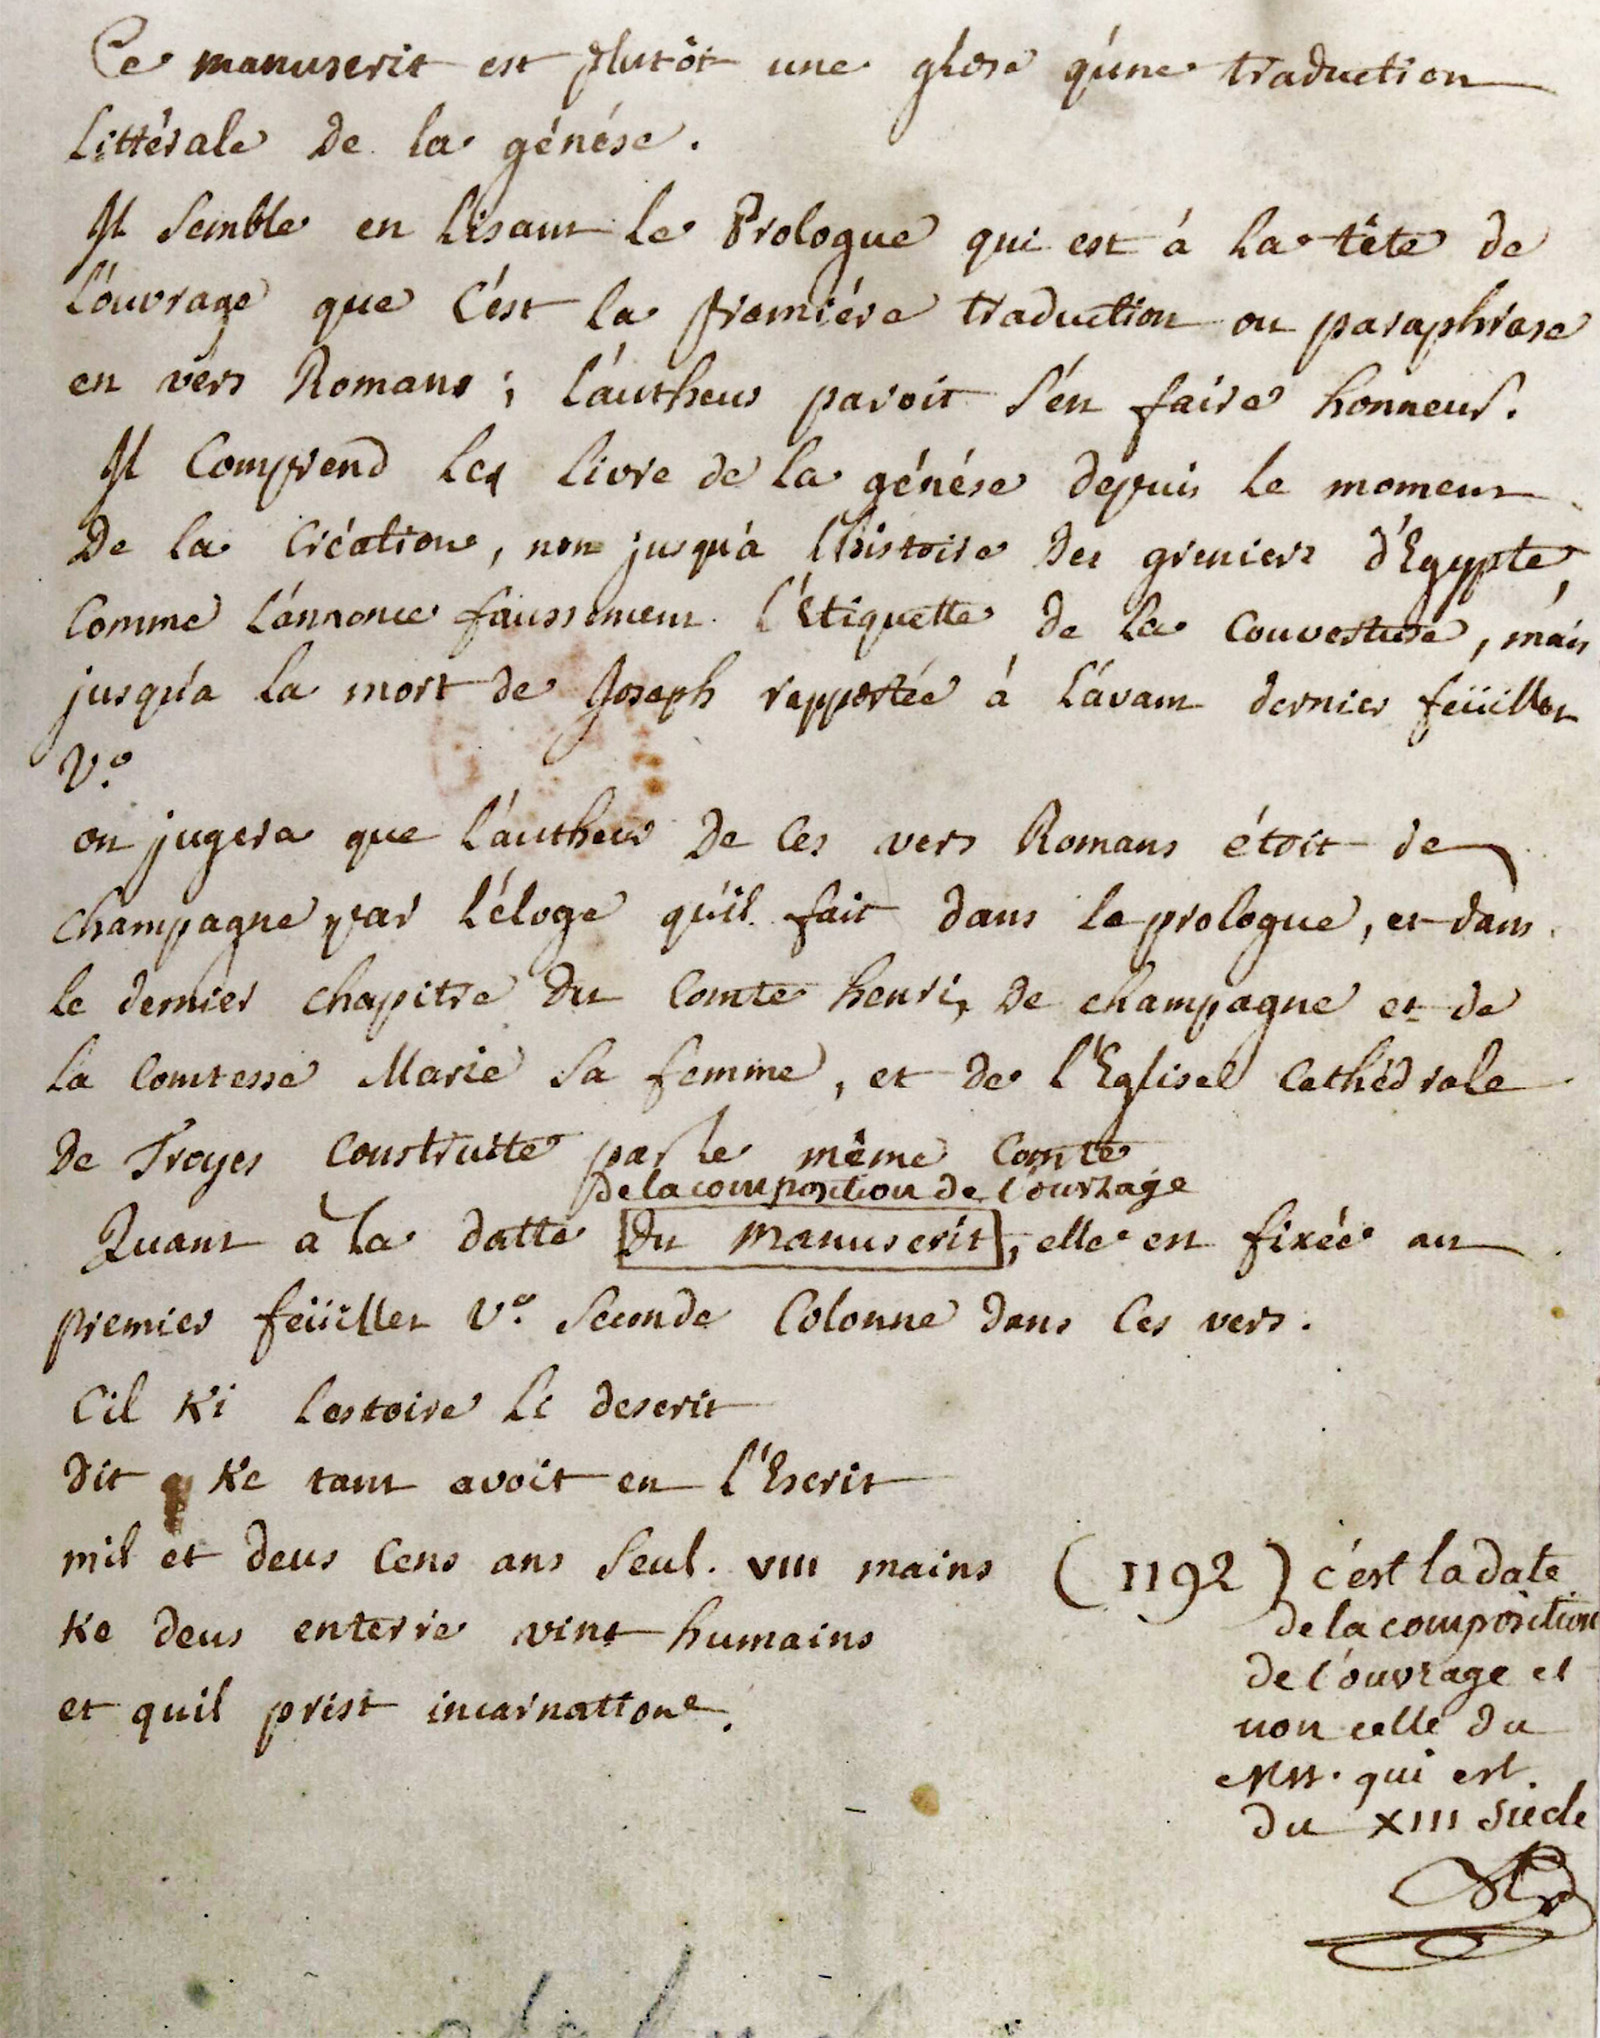 Ce manuscrit est plutôt une glose qu'une traduction
littérale de la génése.
Il semble en lisant le Prologue qui est à la tête de
l'ouvrage que c'est la première traduction ou paraphrase
en vers Romans ; l'autheur paroit s'en faire honneur.
Il comprend le livre de la génése depuis le moment
De la Création, non jusqu'à l'histoire des greniers d'Egypte,
comme l'annonce faussement l'étiquette de la couverture, mais
jusqu'a la mort de Joseph rapportée à l'avant dernier feüillet
V.º
on jugera que l'autheur de ces vers Romans étoit de
champagne par l'éloge qu'il fait dans le prologue, et dans
le dernier chapitre du Comte henri, de champagne et de
la Comtesse Marie sa femme, et de l'Eglise Cathédrale
de Troyes construite par le même Comte
de la composition de l'ouvrage
Quant à la datte [du manuscrit], elle est fixée au
premier feüillet V.º seconde Colonne dans ces vers.
Cil Ki lestoire li descrit
Dit Ke tant avoit en l'Escrit
mil et deus cens ans seul. VIII mains
Ke deus enterre vint humains
et quil prist incarnatione.
(1192) c'est la date
de la composition
de l'ouvrage et
non celle du
Mss. qui est
du XIII siecle